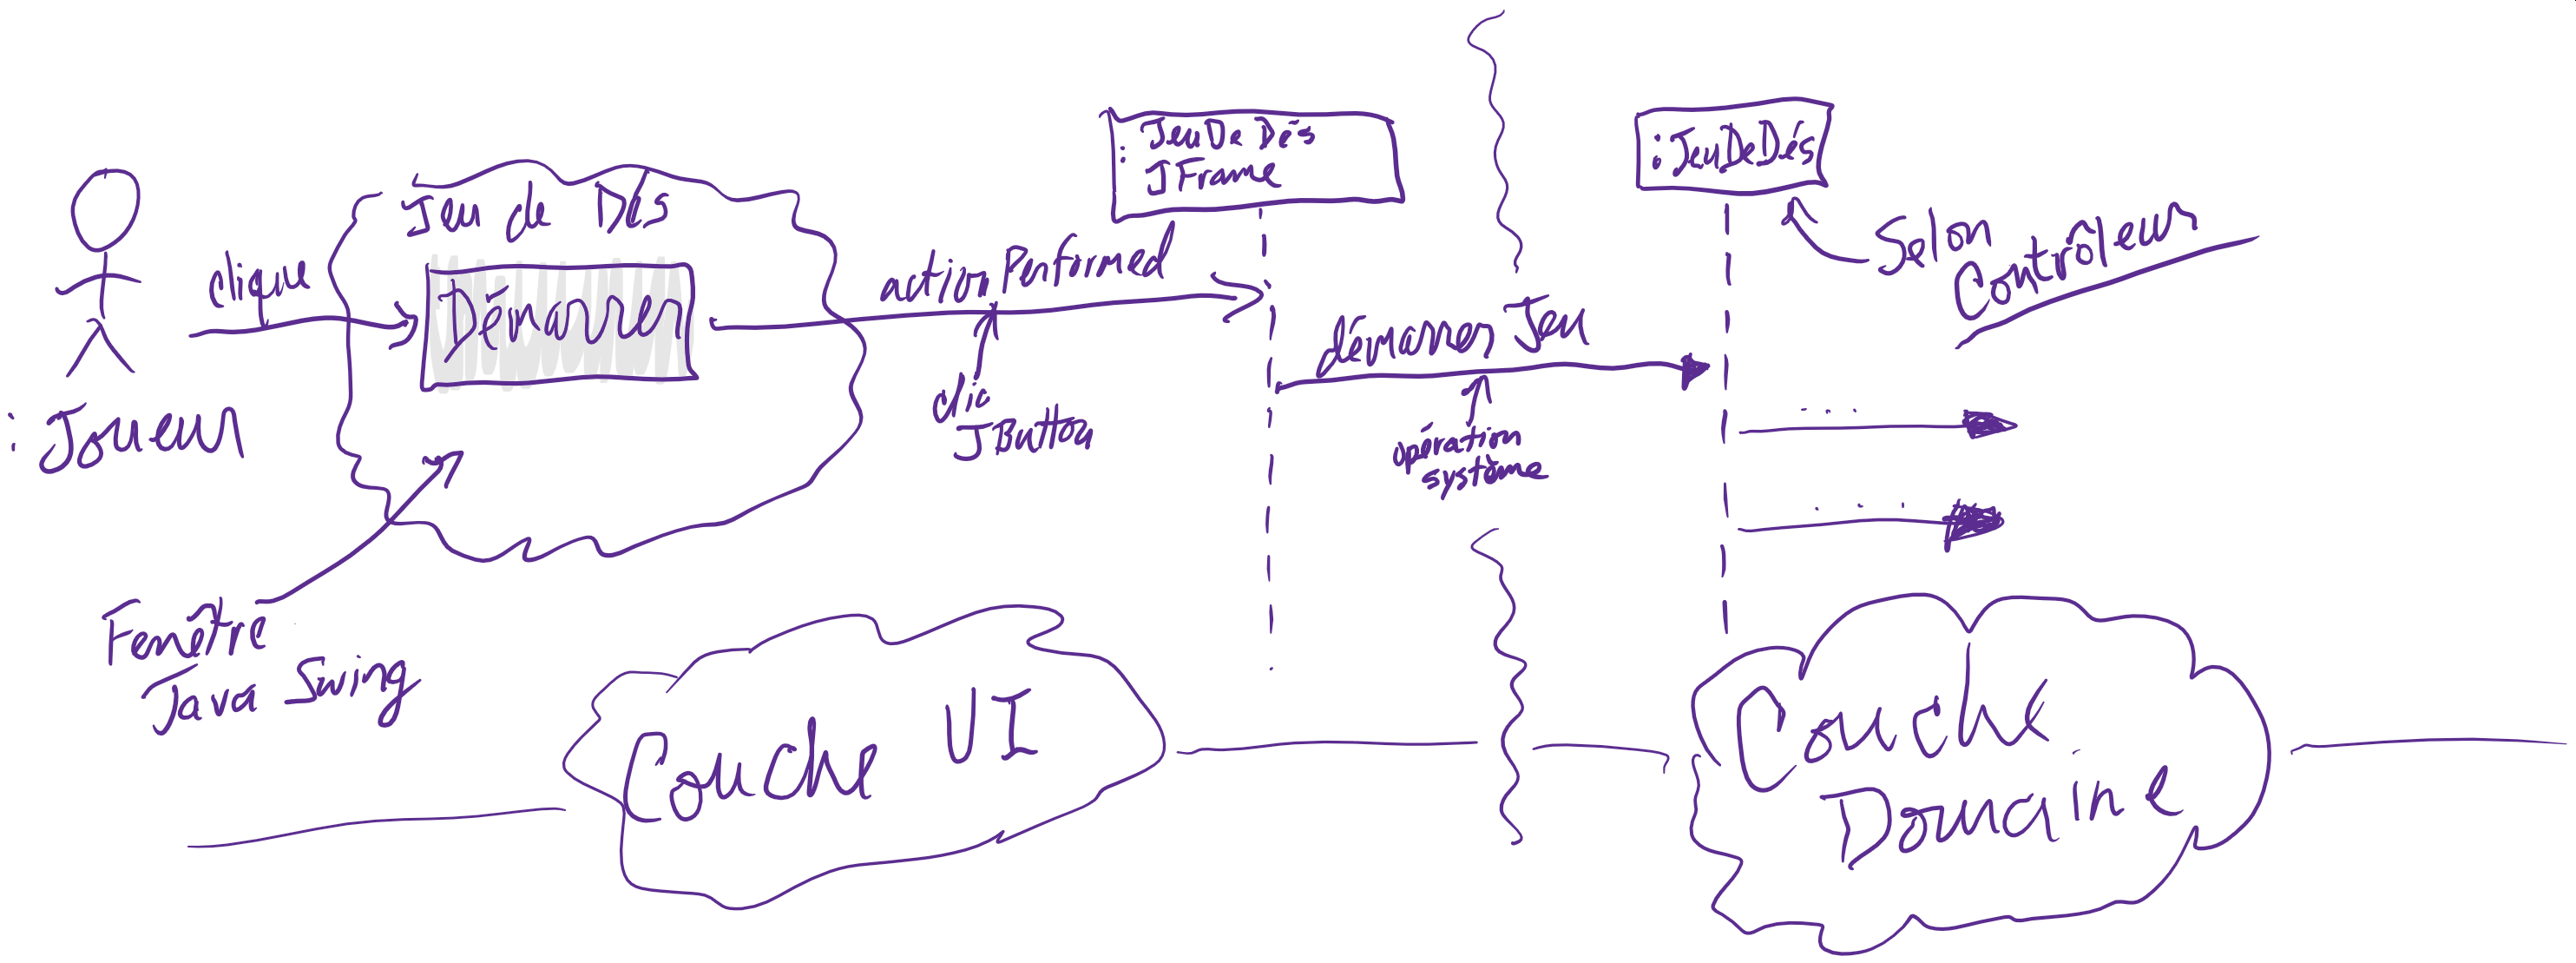 : Joueur
clique
Jeu de Dés
Démarrer
Fenêtre
Java Swing
actionPerformed
clic
JButton
: JeuDeDés
JFrame
démarrerJeu
opération
système
:JeuDeDés
Selon
Contrôleur
...
...
Couche UI
Couche
Domaine